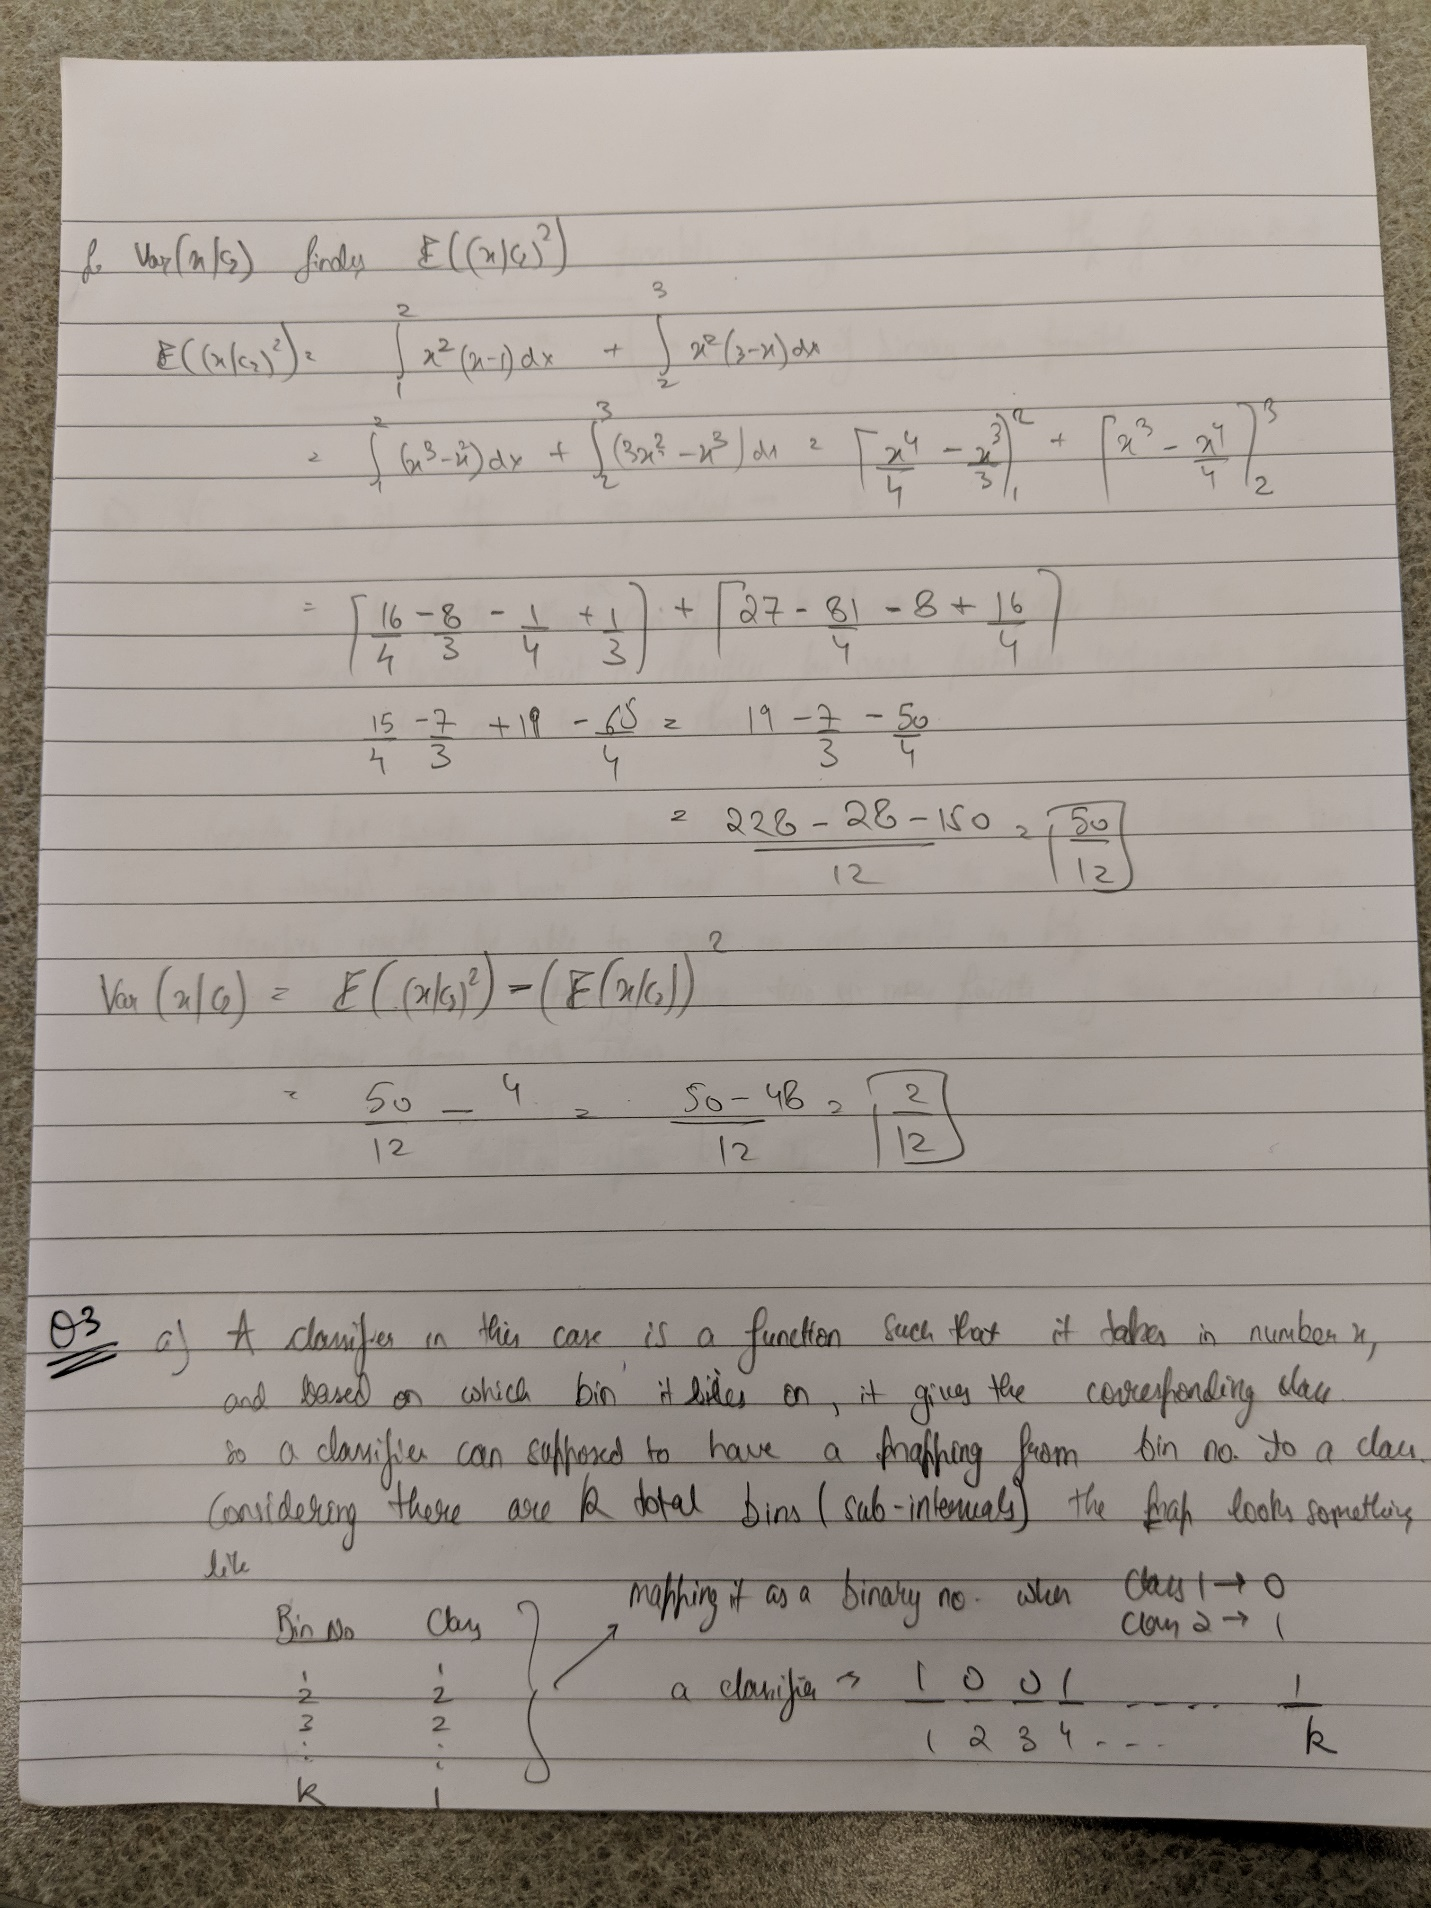 for Var(x/C2) finding E((x/C2)²)
E((x/C2)²) = ∫₁² x²(x-1)dx + ∫₂³ x²(3-x)dx
= ∫₁² (x³-x²)dx + ∫₂³ (3x²-x³)dx = [x⁴/4 - x³/3]₁² + [x³ - x⁴/4]₂³
= [16/4 - 8/3 - 1/4 + 1/3] + [27 - 81/4 - 8 + 16/4]
15/4 - 7/3 + 19 - 65/4 = 19 - 7/3 - 50/4
= (228 - 28 - 150)/12 = 50/12
Var(x/C2) = E((x/C2)²) - (E(x/C2))²
= 50/12 - 4 = (50-48)/12 = 2/12
Q3 a) A classifier in this case is a function such that it takes in number x,
and based on which bin it lies on, it gives the corresponding class.
so a classifier can supposed to have a mapping from bin no. to a class.
Considering there are k total bins (sub-intervals) the map looks something
like
mapping it as a binary no. when Class 1 → 0
Class 2 → 1
Bin No Class
1 1
2 2
3 2
⋮ ⋮
k 1
a classifier → 1 0 0 1 ..... 1
1 2 3 4 ... k